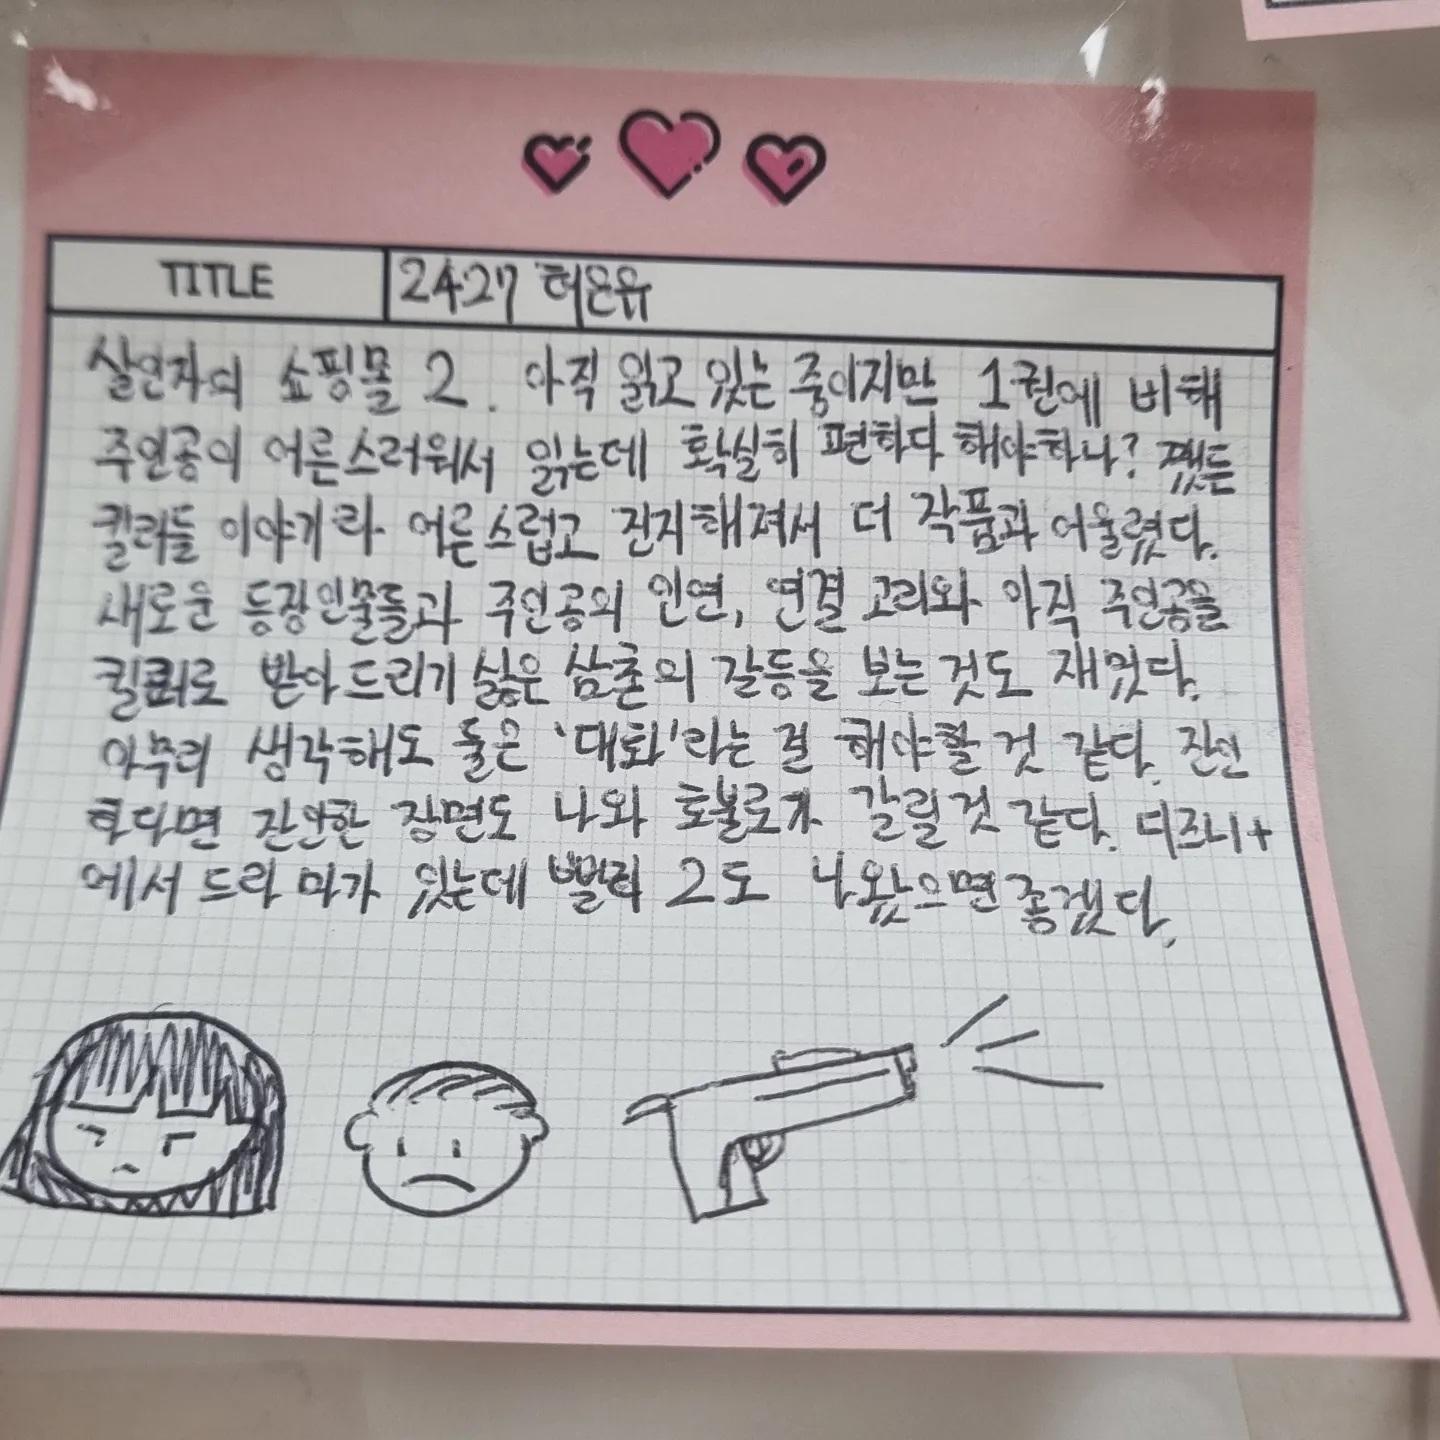 TITLE
2427 허온유
살인자의 쇼핑몰 2. 아직 읽고 있는 중이지만 1권에 비해
주인공이 어른스러워서 읽는데 확실히 편하다 해야하나? 쨌든
킬러들 이야기라 어른스럽고 진지해져서 더 작품과 어울렸다.
새로운 등장인물들과 주인공의 인연, 연결 고리와 아직 주인공을
킬러로 받아드리기 싫은 삼촌의 갈등을 보는 것도 재밌다.
아무리 생각해도 둘은 '대화'라는 걸 해야할 것 같다. 잔인
하다면 잔인한 장면도 나와 호불호가 갈릴것 같다. 디즈니+
에서 드라마가 있는데 빨리 2도 나왔으면 좋겠다.